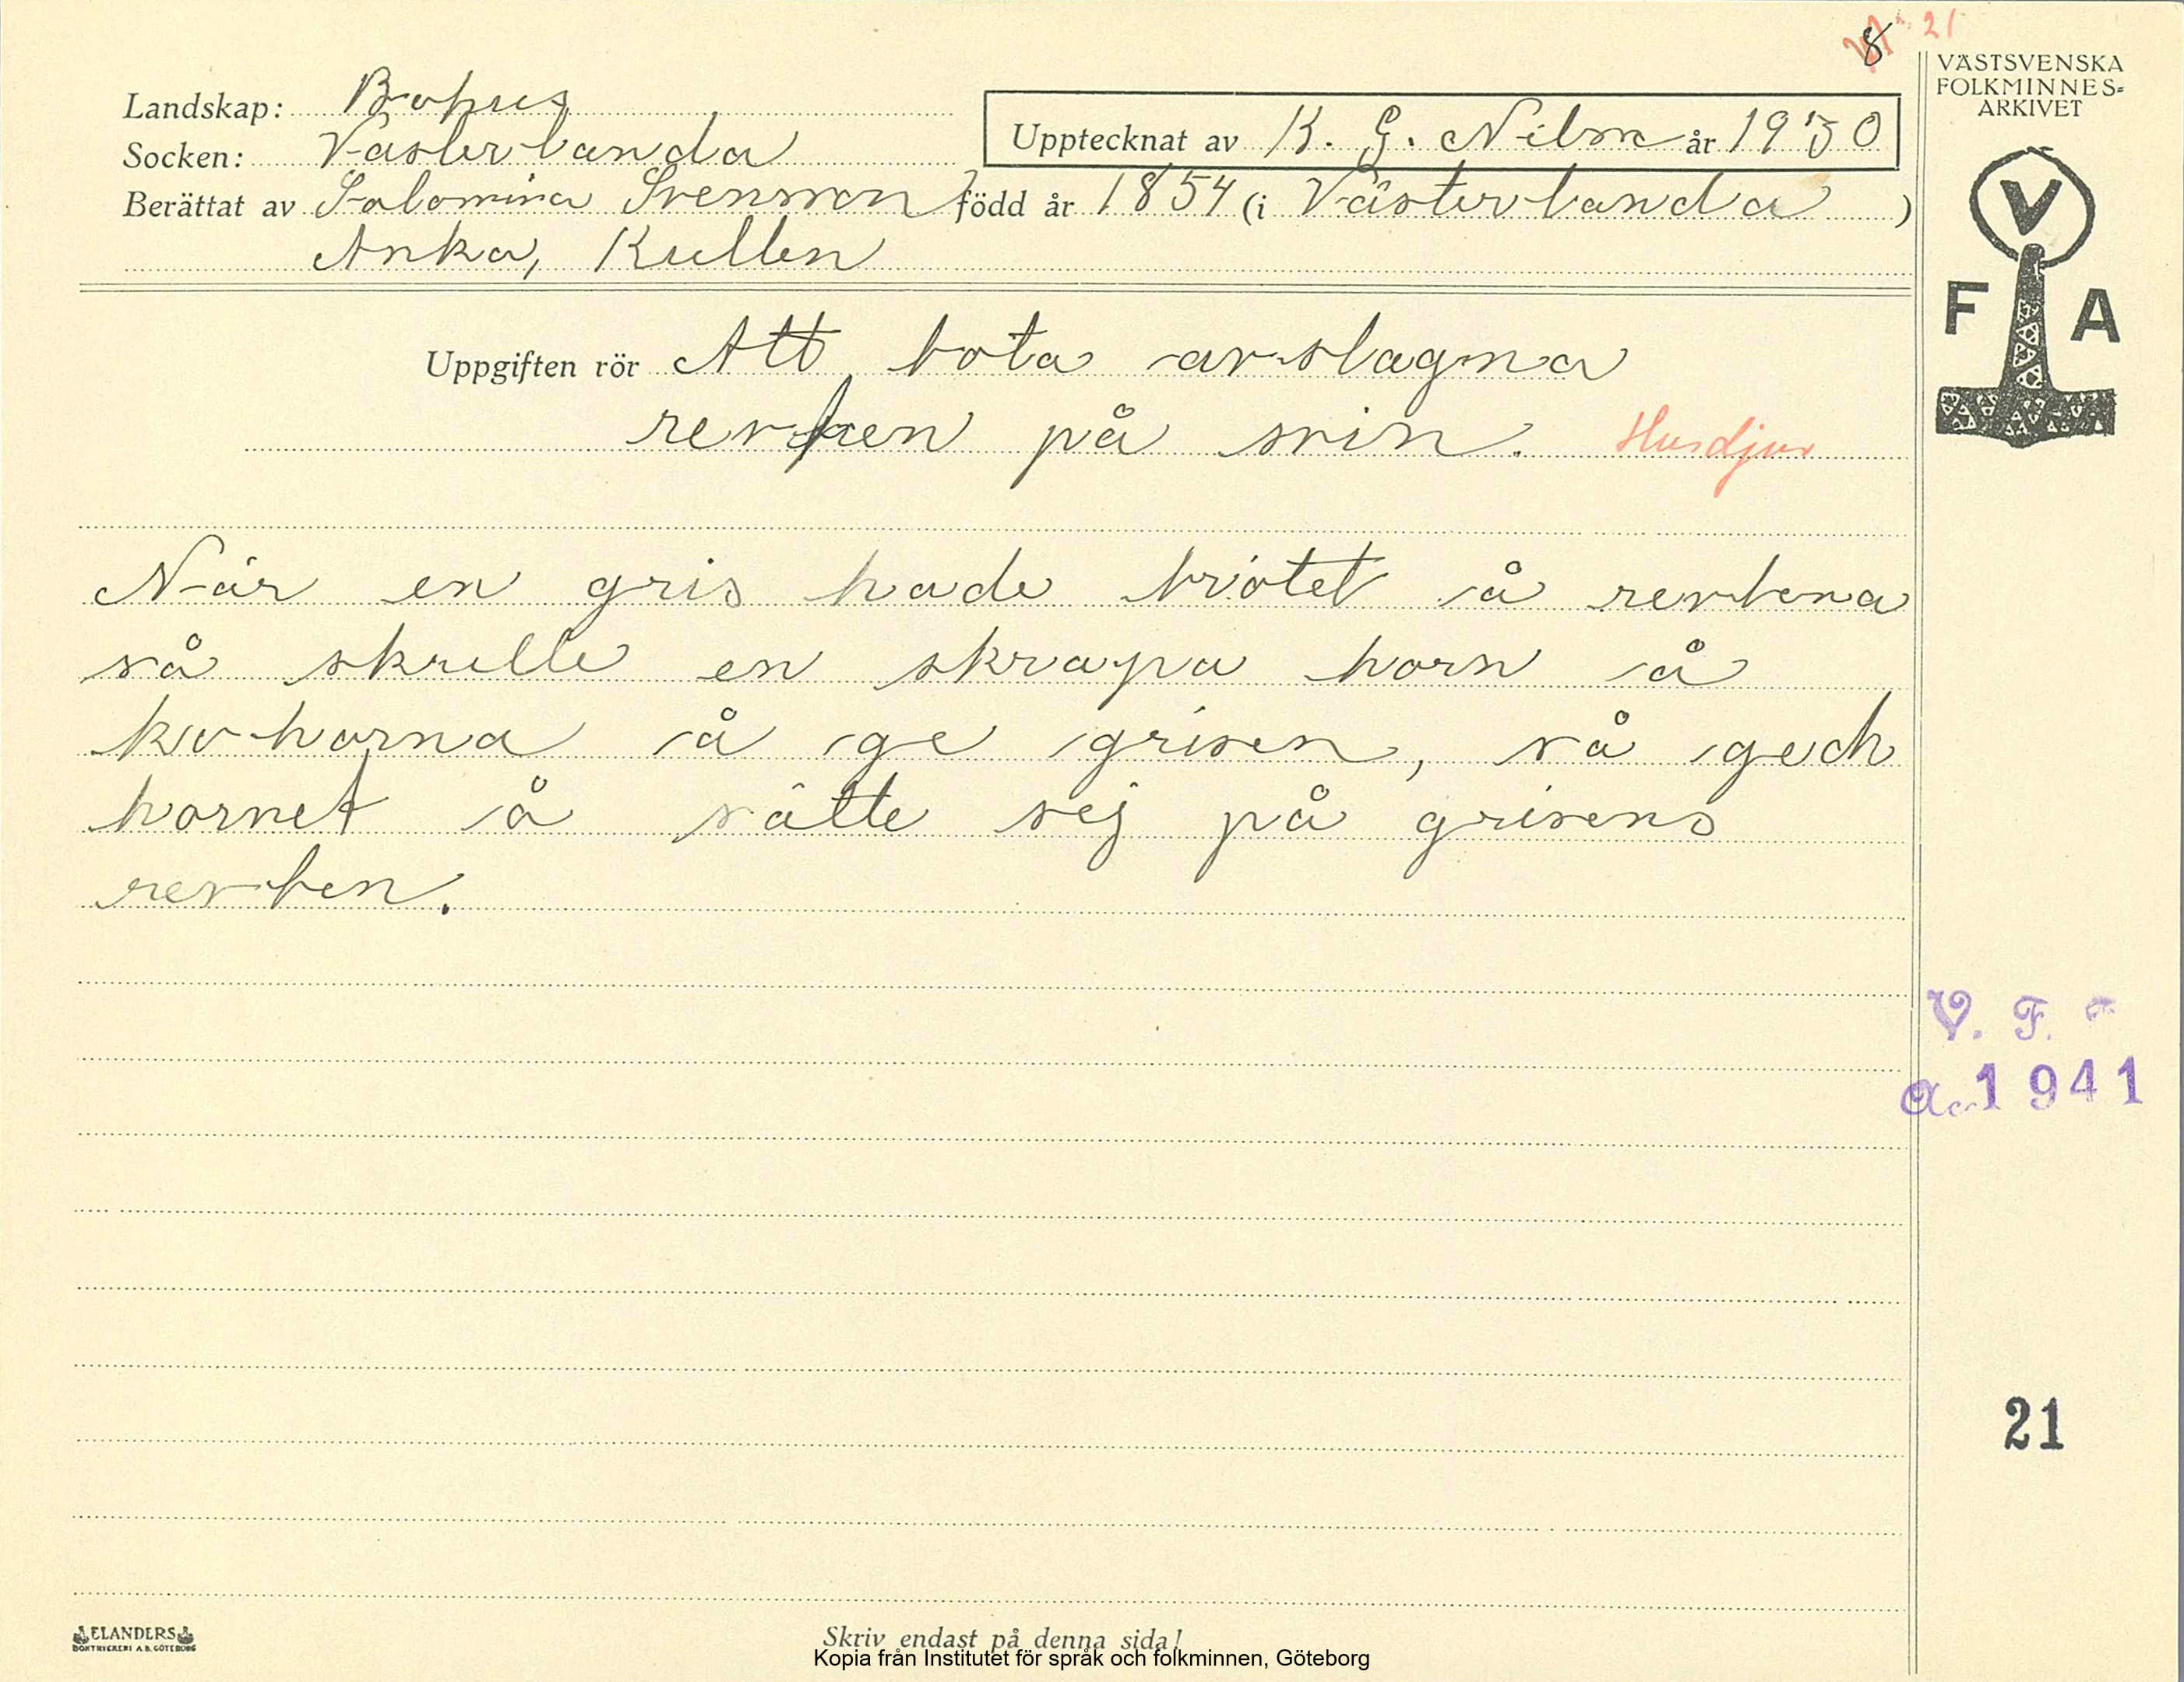 8 21
VÄSTSVENSKA
FOLKMINNES=
ARKIVET
Landskap: Bohus
Upptecknat av K. G. Nilson år 1930
Socken: Västerlanda
Berättat av Salomina Svensson född år 1854 (i Västerlanda )
Anka, Kullen
V
F A
Uppgiften rör Att bota avslagna
revben på svin. Husdjur
När en gris hade brötet å revbena
så skulle en skrapa horn å
ko-horna å ge grisen, så gech
hornet å sätte sej på grisens
revben.
V. F.
1941
21
ELANDERS
BOKTRYCKERI A.B. GÖTEBORG
Skriv endast på denna sida!
Kopia från Institutet för språk och folkminnen, Göteborg